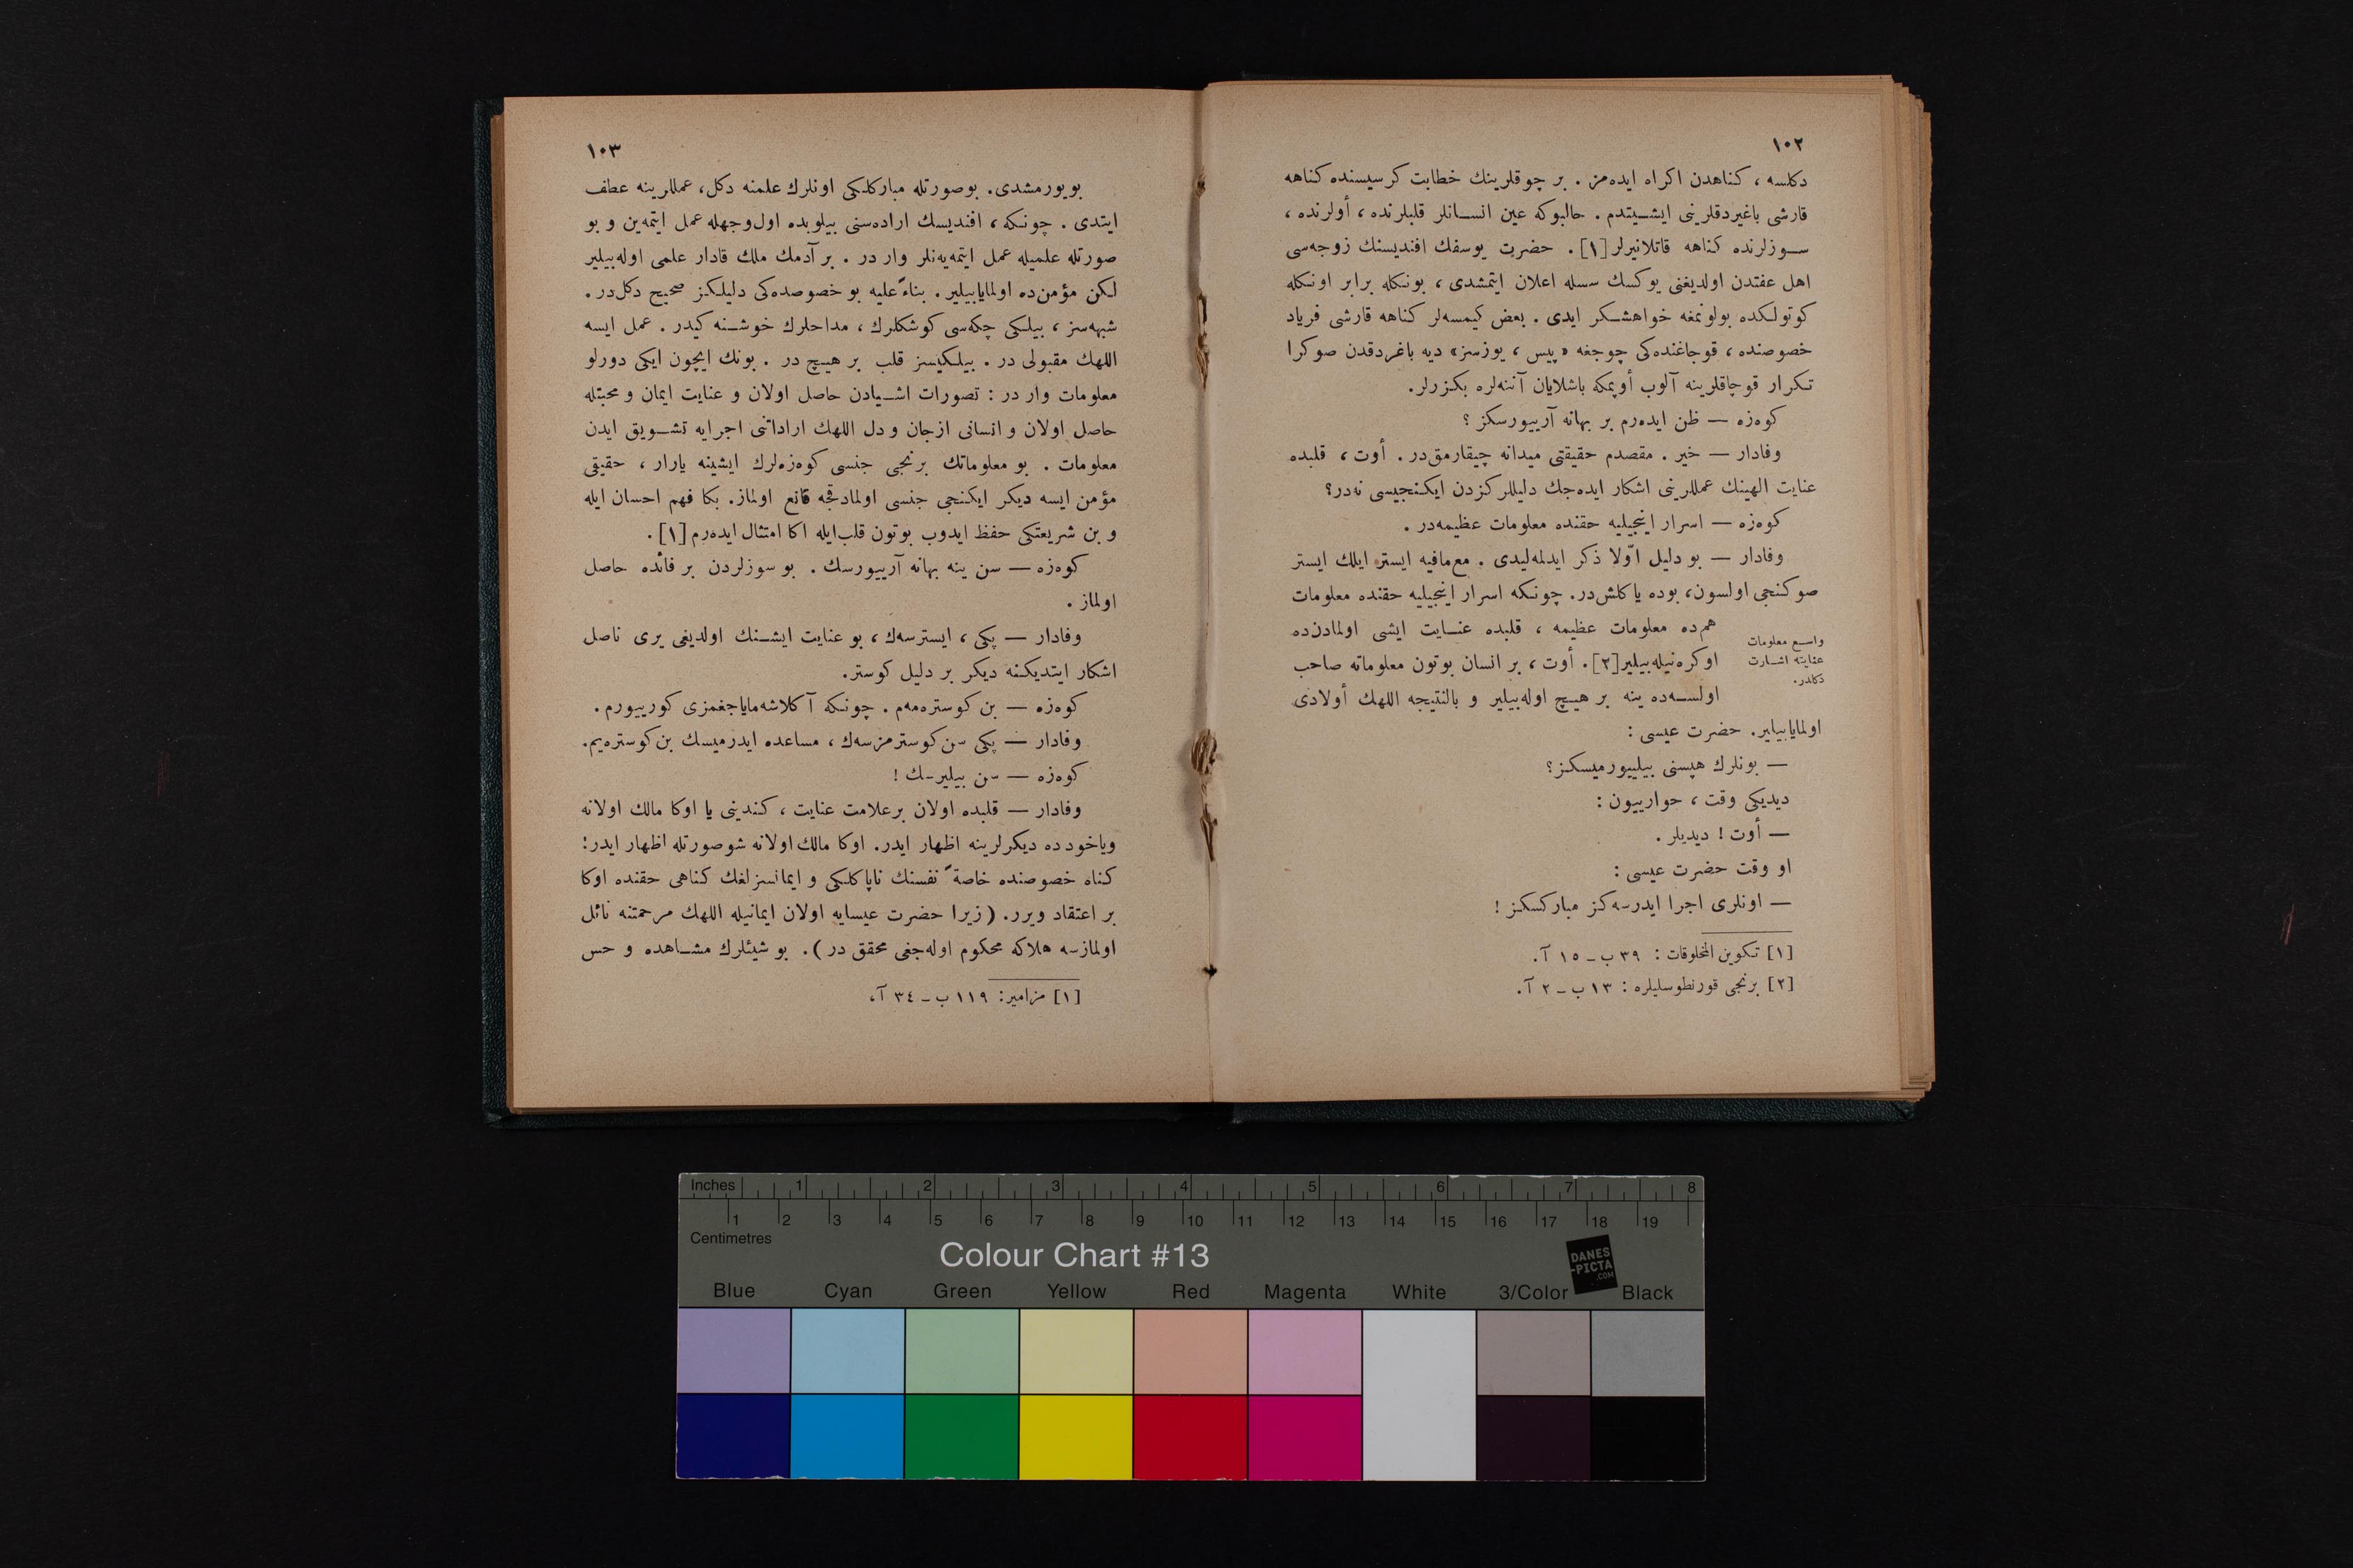 ١٠٢
دكلسه ، كناهدن اكراه ايده‌مز . بر چوقلرينك خطابت كرسيسنده كناهه
قارشى باغيردقلرينى ايشيتدم . حالبوكه عين انسانلر قلبلرنده ، أولرنده ،
سوزلرنده كناهه قاتلانيرلر [١] . حضرت يوسفك افنديسنك زوجه‌سى
اهل عفتدن اولديغنى يوكسك سسله اعلان ايتمشدى ، بونكله برابر اونكله
كوتولكده بولونمغه خواهشكر ايدى . بعض كيمسه‌لر كناهه قارشى فرياد
خصوصنده ، قوجاغنده‌كى چوجغه «پيس ، يوزسز» ديه باغردقدن صوكرا
تكرار قوچاقلرينه آلوب أوپمكه باشلايان آننه‌لره بكزرلر.
كوه‌زه — ظن ايده‌رم بر بهانه آرييورسكز ؟
وفادار — خير . مقصدم حقيقتى ميدانه چيقارمق‌در . أوت ، قلبده
عنايت الهينك عمللرينى اشكار ايده‌جك دليللركزدن ايكنجيسى نه‌در؟
كوه‌زه — اسرار انجيليه حقنده معلومات عظيمه‌در .
وفادار — بو دليل اوّلا ذكر ايدلمه‌ليدى . مع‌مافيه ايستر ايلك ايستر
صوكنجى اولسون، بوده ياكلش‌در. چونكه اسرار انجيليه حقنده معلومات
هم‌ده معلومات عظيمه ، قلبده عنايت ايشى اولمادن‌ده
اوكره‌نيله‌بيلير[٢]. أوت ، بر انسان بوتون معلوماته صاحب
اولسه‌ده ينه بر هيچ اوله‌بيلير و بالنتيجه اللهك أولادى
واسع معلومات
عنايته اشارت
دكلدر.
اولمايابيلير. حضرت عيسى :
— بونلرك هپسنى بيلييورميسكز؟
ديديكى وقت ، حوارييون :
— أوت ! ديديلر .
او وقت حضرت عيسى :
— اونلرى اجرا ايدرسه‌كز مباركسكز !
[١] تكوين المخلوقات : ٣٩ ب ـ ١٥ آ.
[٢] برنجى قورنطوسليلره : ١٣ ب ـ ٢ آ.
١٠٣
بويورمشدى. بوصورتله مباركلكى اونلرك علمنه دكل، عمللرينه عطف
ايتدى . چونكه ، افنديسك اراده‌سنى بيلوبده اول‌وجهله عمل ايتمه‌ين و بو
صورتله علميله عمل ايتمه‌يه‌نلر وار در . بر آدمك ملك قادار علمى اوله‌بيلير
لكن مؤمن‌ده اولمايابيلير . بناءً عليه بو خصوصده‌كى دليلكز صحيح دكل‌در .
شبهه‌سز ، بيلكى چكه‌سى كوشكلرك ، مداحلرك خوشنه كيدر . عمل ايسه
اللهك مقبولى در . بيلكيسز قلب بر هيچ در . بونك ايچون ايكى دورلو
معلومات وار در : تصورات اشيادن حاصل اولان و عنايت ايمان و محبتله
حاصل اولان و انسانى ازجان و دل اللهك اراداتنى اجرايه تشويق ايدن
معلومات . بو معلوماتك برنجى جنسى كوه‌زه‌لرك ايشينه يارار ، حقيقى
مؤمن ايسه ديكر ايكنجى جنسى اولمادقجه قانع اولماز. بكا فهم احسان ايله
و بن شريعتكى حفظ ايدوب بوتون قلب‌ايله اكا امتثال ايده‌رم [١].
كوه‌زه — سن ينه بهانه آرييورسك . بو سوزلردن بر فائده حاصل
اولماز .
وفادار — پكى ، ايسترسه‌ك ، بو عنايت ايشنك اولديغى يرى ناصل
اشكار ايتديكنه ديكر بر دليل كوستر.
كوه‌زه — بن كوستره‌مه‌م . چونكه آكلاشه‌ماياجغمزى كورييورم .
وفادار — پكى سن كوسترمزسه‌ك ، مساعده ايدرميسك بن كوستره‌يم.
كوه‌زه — سن بيليرـك !
وفادار — قلبده اولان برعلامت عنايت ، كندينى يا اوكا مالك اولانه
وياخودده ديكرلرينه اظهار ايدر. اوكا مالك اولانه شوصورتله اظهار ايدر:
كناه خصوصنده خاصةً نفسنك ناپاكلكى و ايمانسزلغك كناهى حقنده اوكا
بر اعتقاد ويرر. (زيرا حضرت عيسايه اولان ايمانيله اللهك مرحمتنه نائل
اولمازسه هلاكه محكوم اوله‌جغى محقق در). بو شيئلرك مشاهده و حس
[١] مزامير: ١١٩ ب ـ ٣٤ آ.
Inches 1 2 3 4 5 6 7 8
1 2 3 4 5 6 7 8 9 10 11 12 13 14 15 16 17 18 19
Centimetres
Colour Chart #13
DANES
-PICTA
.COM
Blue Cyan Green Yellow Red Magenta White 3/Color Black